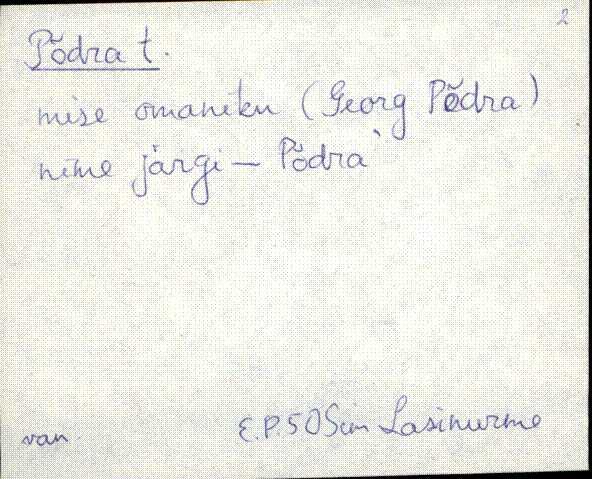 2
Põdra t.
mise omaniku (Georg Põdra)
nime järgi – Põdra
van.
E.P. 50 Sim Lasinurme